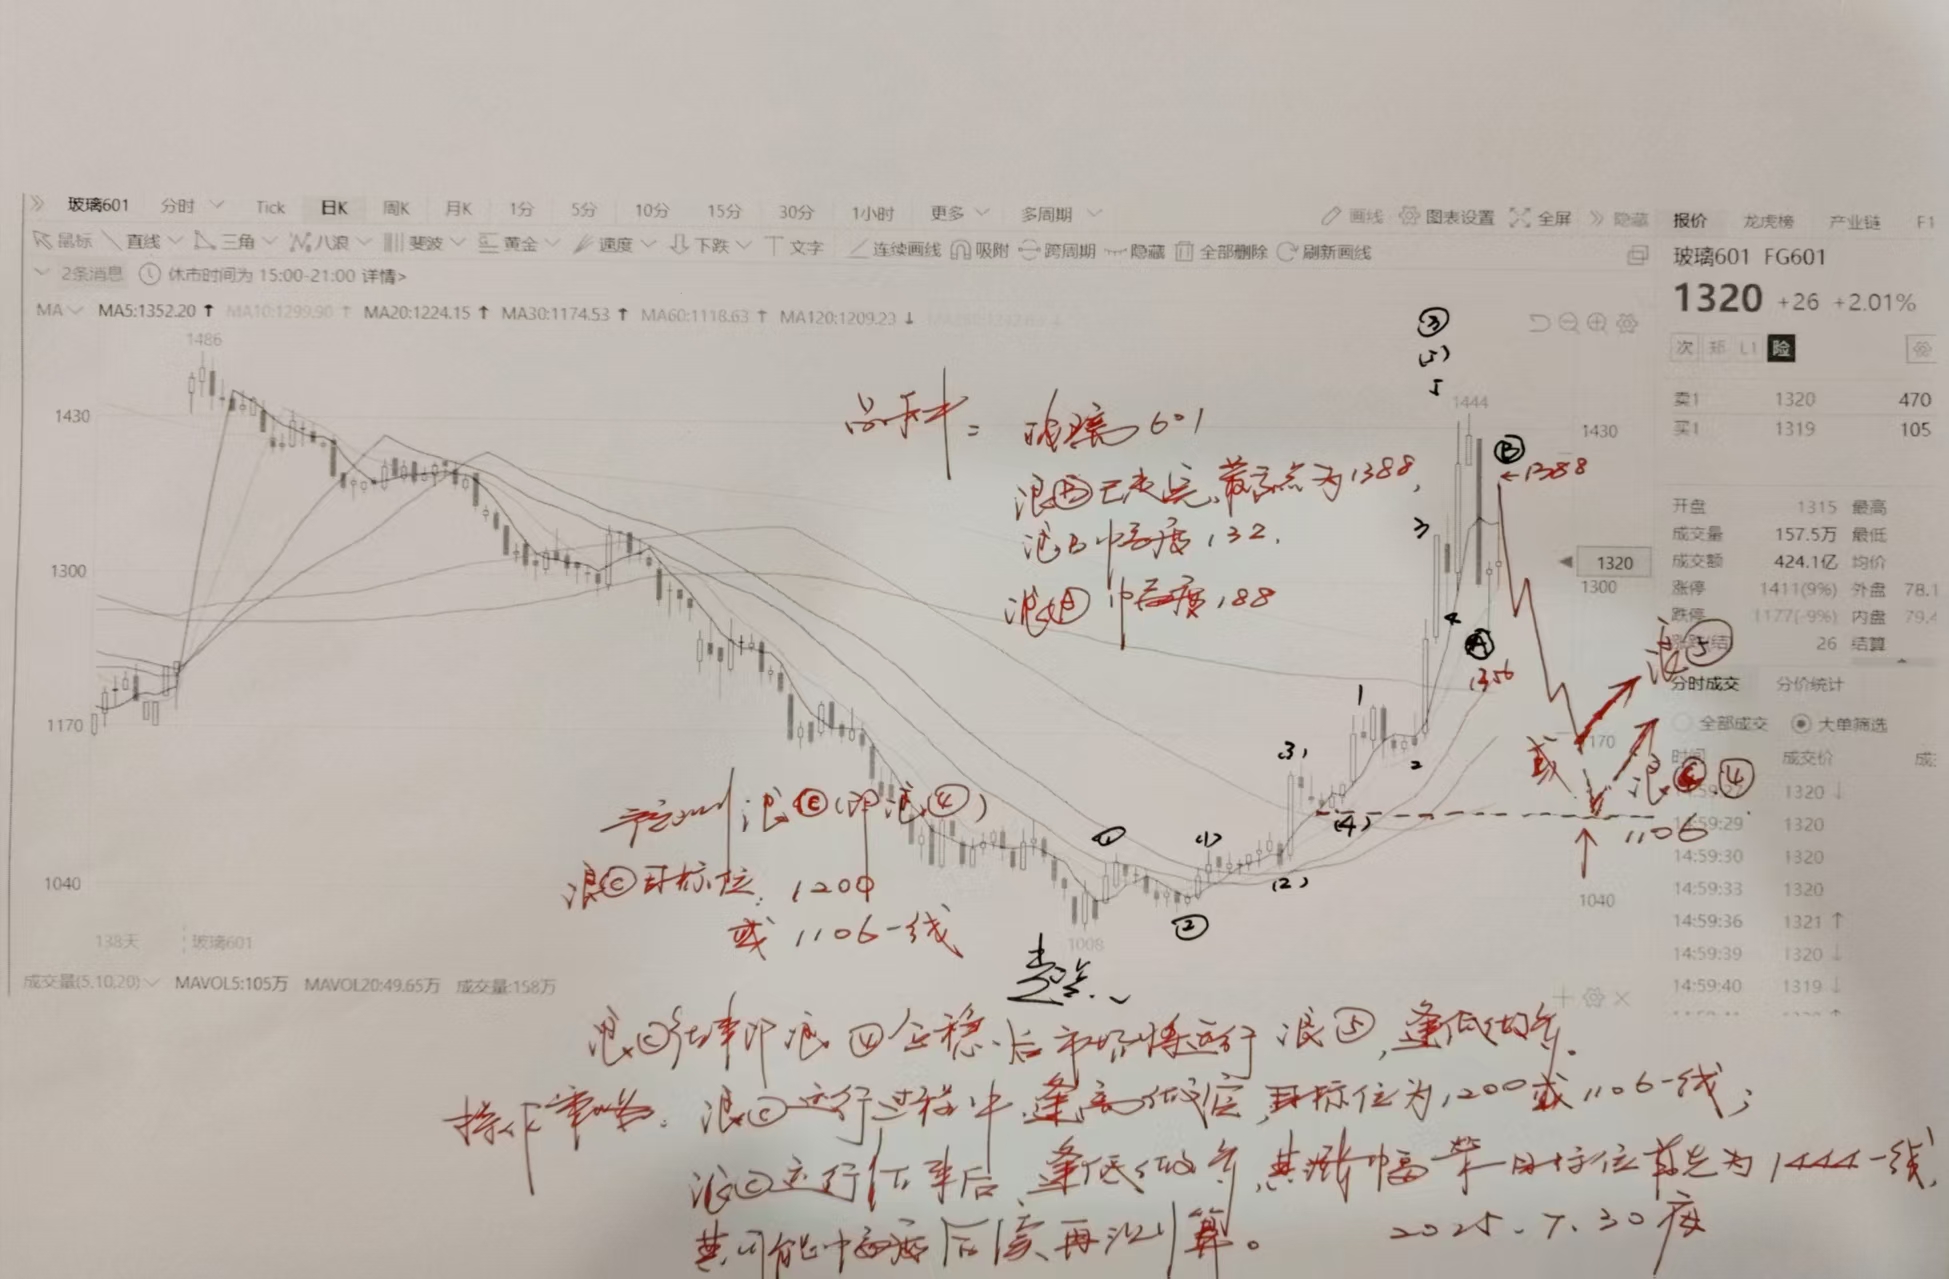 玻璃601 分时 Tick 日K 周K 月K 1分 5分 10分 15分 30分 1小时 更多 多周期 画线 图表设置 全屏 隐藏
鼠标 直线 三角 八浪 斐波 黄金 速度 下跌 文字 连续画线 吸附 跨周期 隐藏 全部删除 刷新画线
2条消息 休市时间为 15:00-21:00 详情>
MA MA5:1352.20 ↑ MA10:1299.90 ↑ MA20:1224.15 ↑ MA30:1174.53 ↑ MA60:1118.63 ↑ MA120:1209.23 ↓
1486
1430
1300
1170
1040
138天 玻璃601
1008
起点
成交量(5,10,20) MAVOL5:105万 MAVOL20:49.65万 成交量:158万
品种: 玻璃601
浪Ⓑ已走完,最高点为1388,
浪B中高度132.
1444
③
(5)
5
Ⓑ
←1388
3
4
Ⓐ
1
2
(3)
(4)
①
(1)
(2)
②
1430
1320
1300
170
1040
浪⑤
或
浪Ⓒ.④
1106
浪Ⓒ(即浪④)
浪Ⓒ目标位: 1200
或 1106一线
浪Ⓒ结束即浪④企稳后市场将运行浪⑤,逢低做多.
操作策略: 浪Ⓒ运行过程中逢高做空,目标位为1200或1106一线;
浪Ⓒ运行结束后,逢低做多,其涨幅第一目标位首先为1444一线,
其可能高度后续再计算。 2025.7.30夜
报价 龙虎榜 产业链 F1
玻璃601 FG601
1320 +26 +2.01%
次 郑 L1 险
卖1 1320 470
买1 1319 105
开盘 1315 最高
成交量 157.5万 最低
成交额 424.1亿 均价
涨停 1411(9%) 外盘 78.1
跌停 1177(-9%) 内盘 79.4
26 结算
分时成交 分价统计
全部成交 大单筛选
时间 成交价
1320 ↓
1320
14:59:30 1320
14:59:33 1320
14:59:36 1321 ↑
14:59:39 1320 ↓
14:59:40 1319 ↓